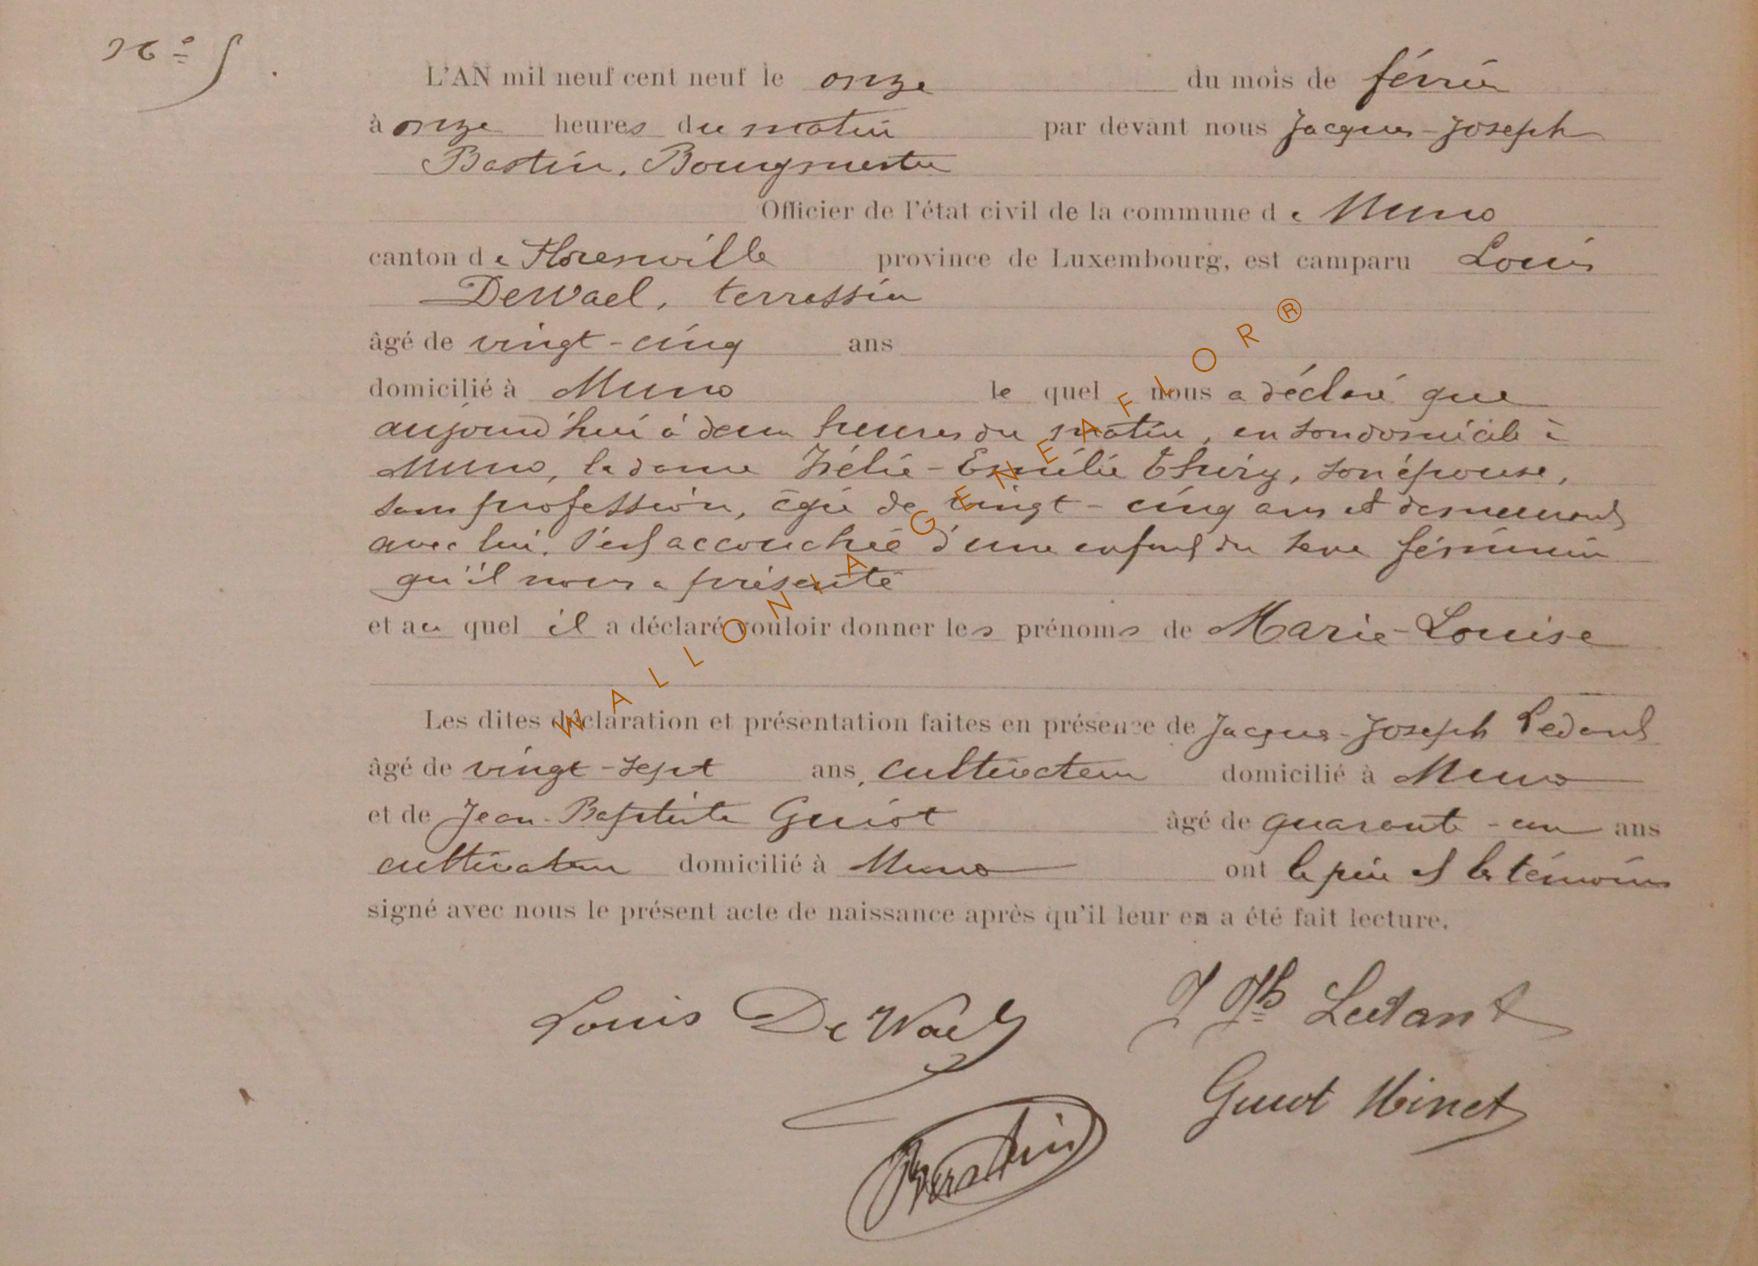 N° 5.
L'AN mil neuf cent neuf le onze du mois de février
à onze heures du matin par devant nous Jacques-Joseph
Bastin, Bourgmestre
Officier de l'état civil de la commune de Muno
canton de Florenville province de Luxembourg, est camparu Louis
DeWael, terrassier
âgé de vingt-cinq ans
domicilié à Muno le quel nous a déclaré que
aujourd'hui à deux heures du matin, en son domicile à
Muno, la dame Zélie-Emélie Thiry, son épouse,
sans profession, âgée de vingt-cinq ans et demeurant
avec lui, s'est accouchée d'une enfant du sexe féminin
qu'il nous a présenté
et au quel il a déclaré vouloir donner les prénoms de Marie-Louise
Les dites déclaration et présentation faites en présence de Jacques-Joseph Ledant
âgé de vingt-sept ans, cultivateur domicilié à Muno
et de Jean-Baptiste Guiot âgé de quarante-un ans
cultivateur domicilié à Muno ont le père et les témoins
signé avec nous le présent acte de naissance après qu'il leur en a été fait lecture.
Louis DeWael
J Jh Ledant
Guiot Hinet
Bastin
WALLONIA GENEAFLOR®